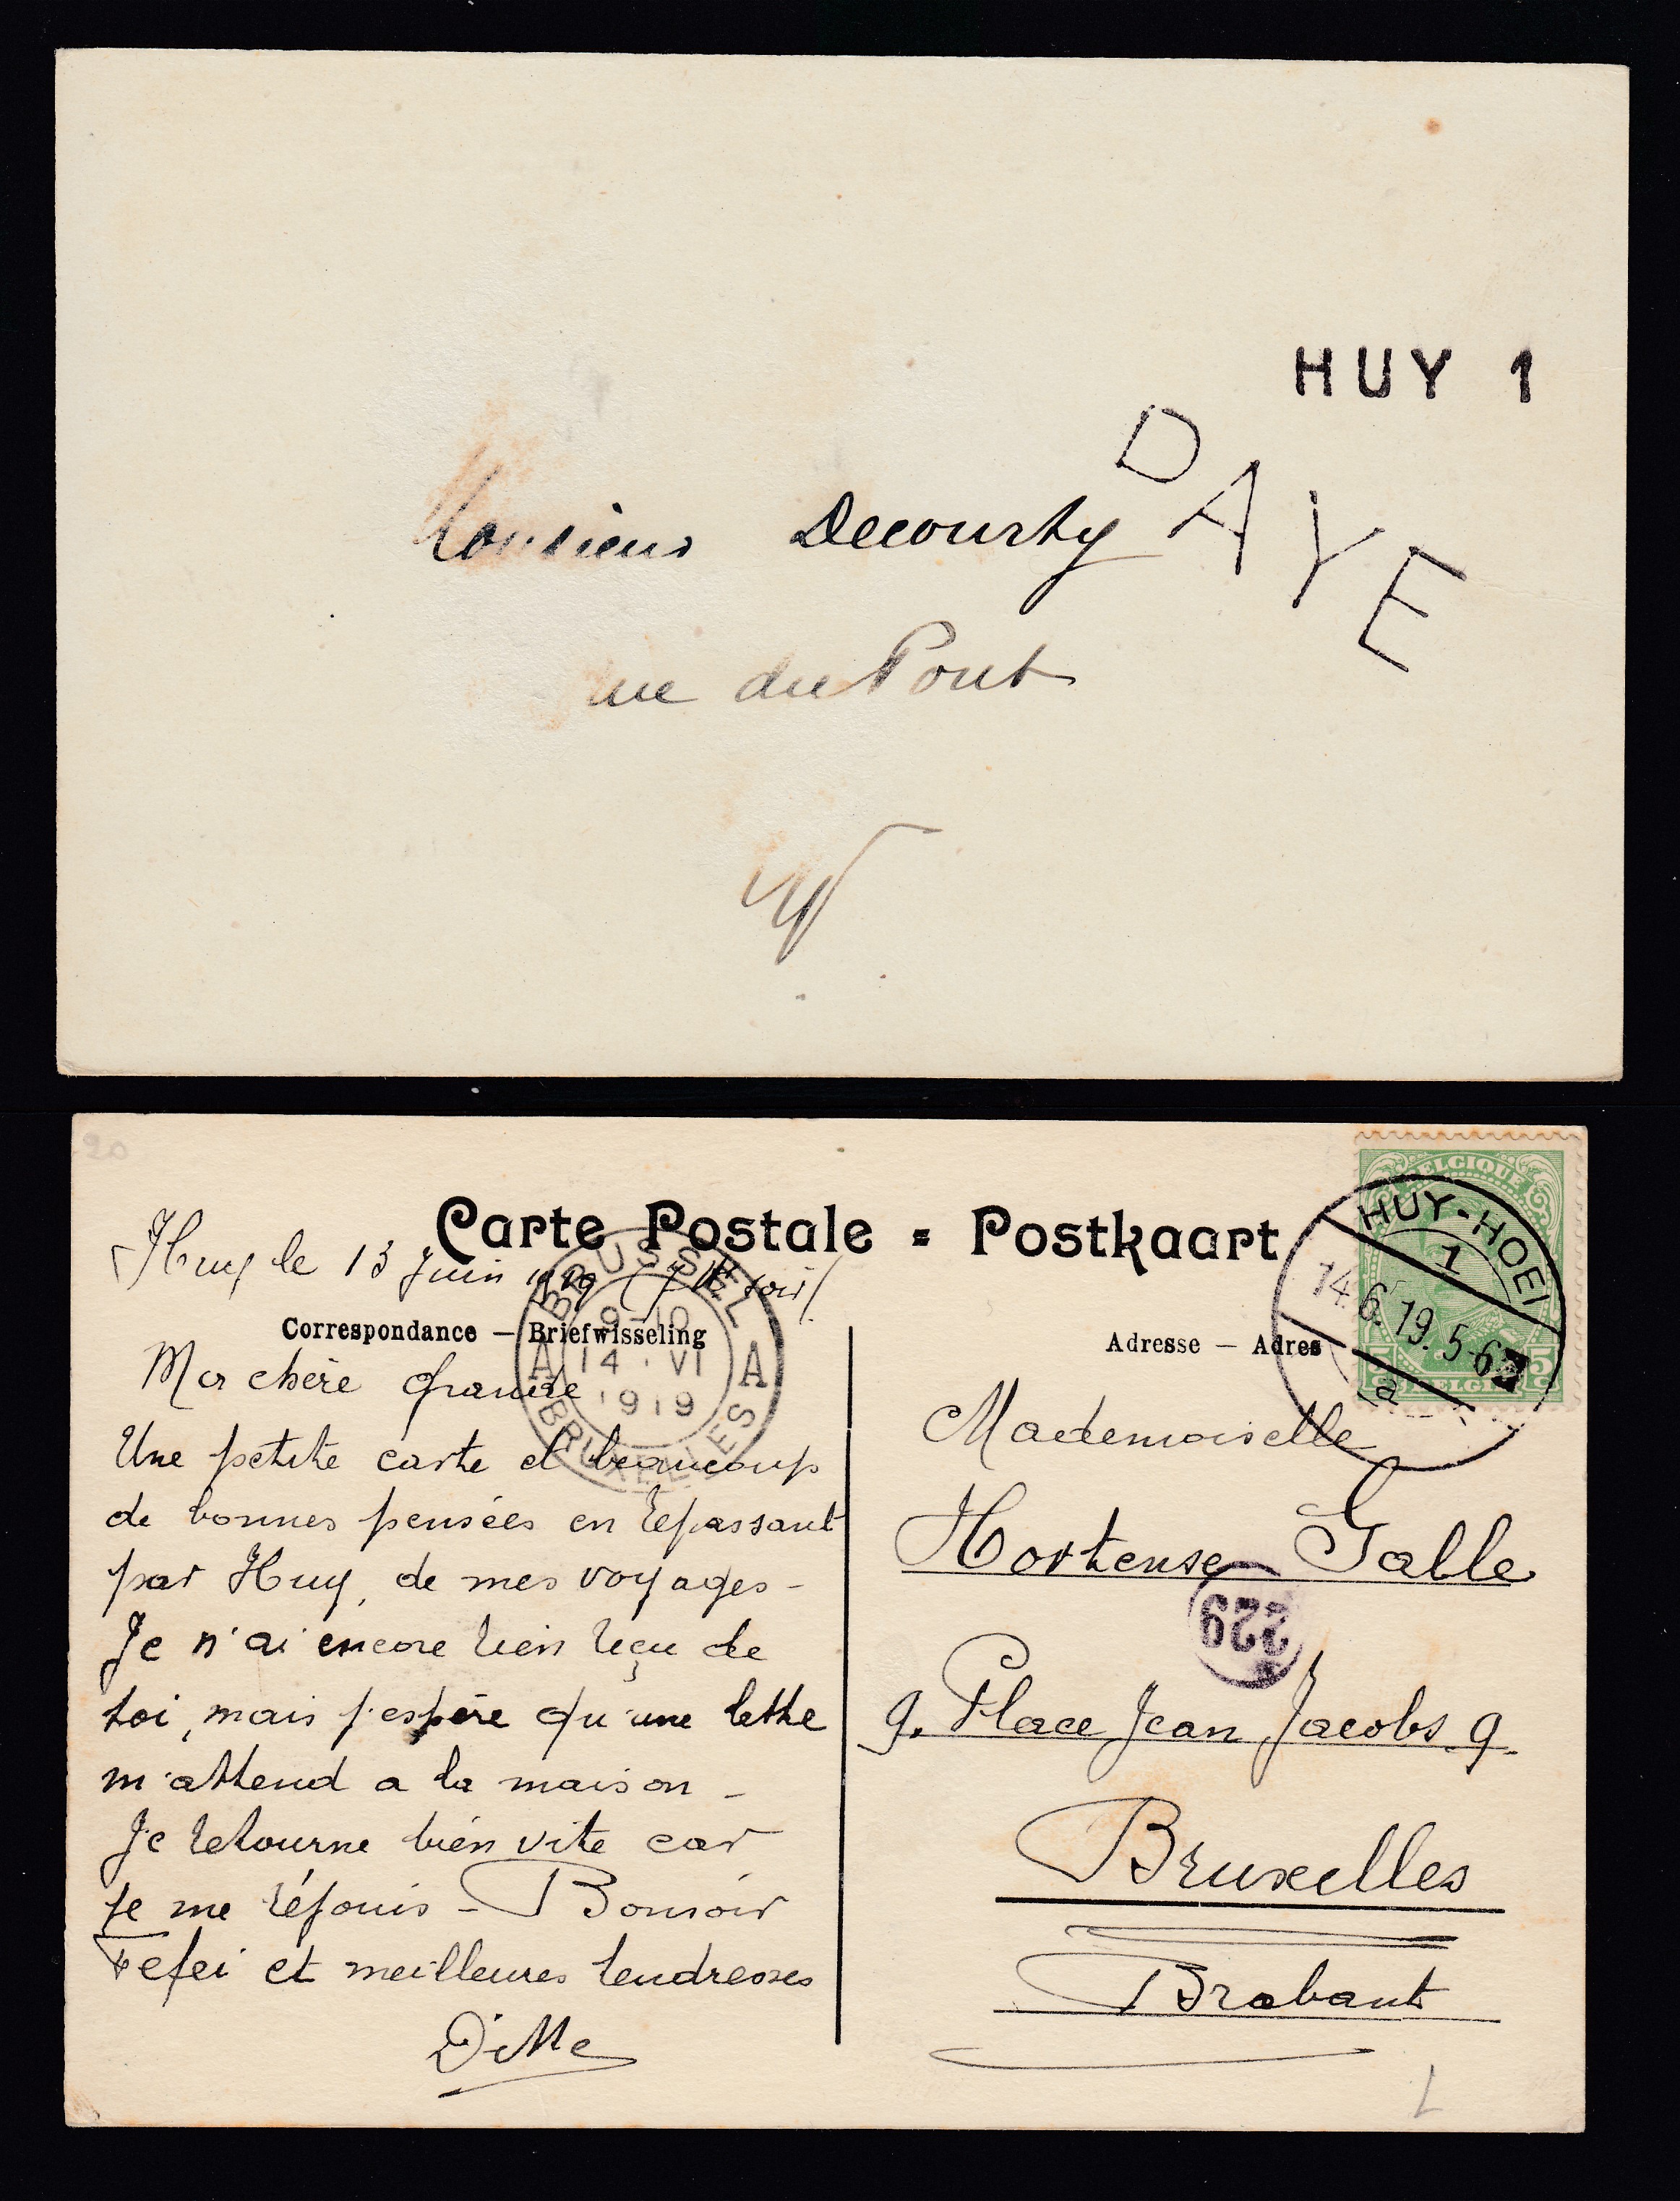 HUY 1
PAYE
Monsieur Decourty
rue du Pont
20
Carte Postale = Postkaart
Huy le 13 Juin 1919 (7 H soir)
Correspondance — Briefwisseling
BRUSSEL
9-10
A 14 · VI A
1919
BRUXELLES
Ma chère grande
Une petite carte et beaucoup
de bonnes pensées en repassant
par Huy, de mes voyages -
Je n'ai encore rien reçu de
toi, mais j'espère qu'une lettre
m'attend a la maison -
Je retourne bien vite car
je me réjouis - Bonsoir
Fefei et meilleures tendresses
Ditte
BELGIQUE
5 BELGIE 5
HUY-HOEI
1
14.6.19.5-6
a
Adresse — Adres
Mademoiselle
Hortense Galle
229
9. Place Jean Jacobs 9.
Bruxelles
Brabant